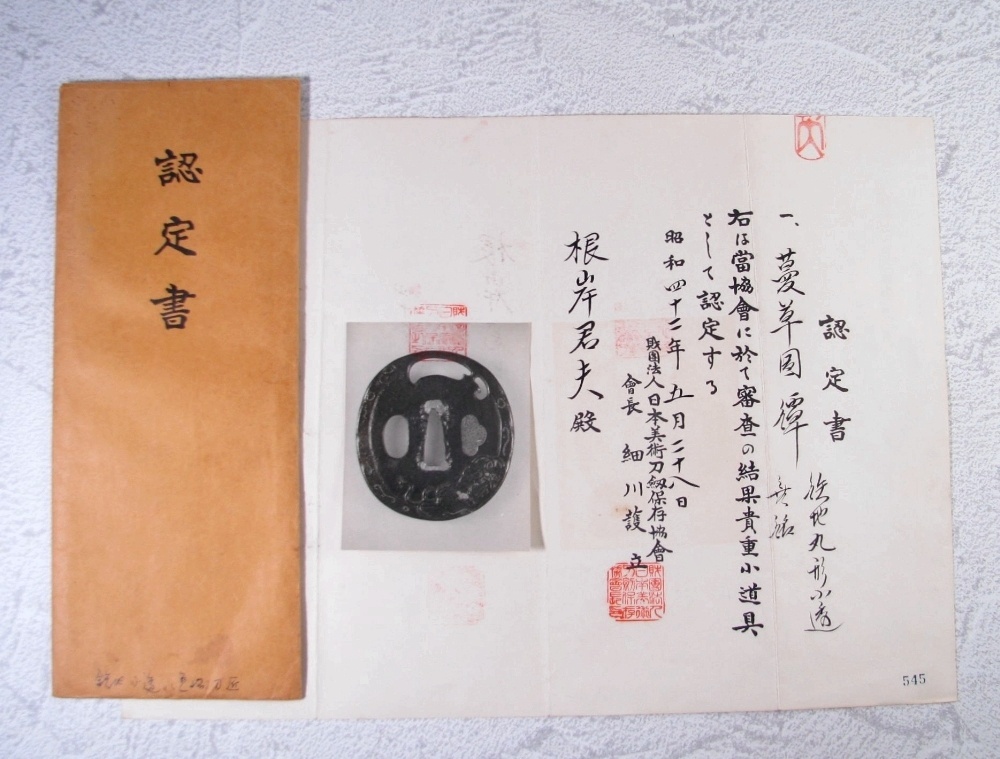 認定書
認定書
一、蔓草図鐔
鉄地丸形小透
無銘
右は當協會に於て審査の結果貴重小道具
として認定する
昭和四十二年五月二十八日
財團法人日本美術刀劔保存協會
會長 細川護立
根岸君夫殿
545